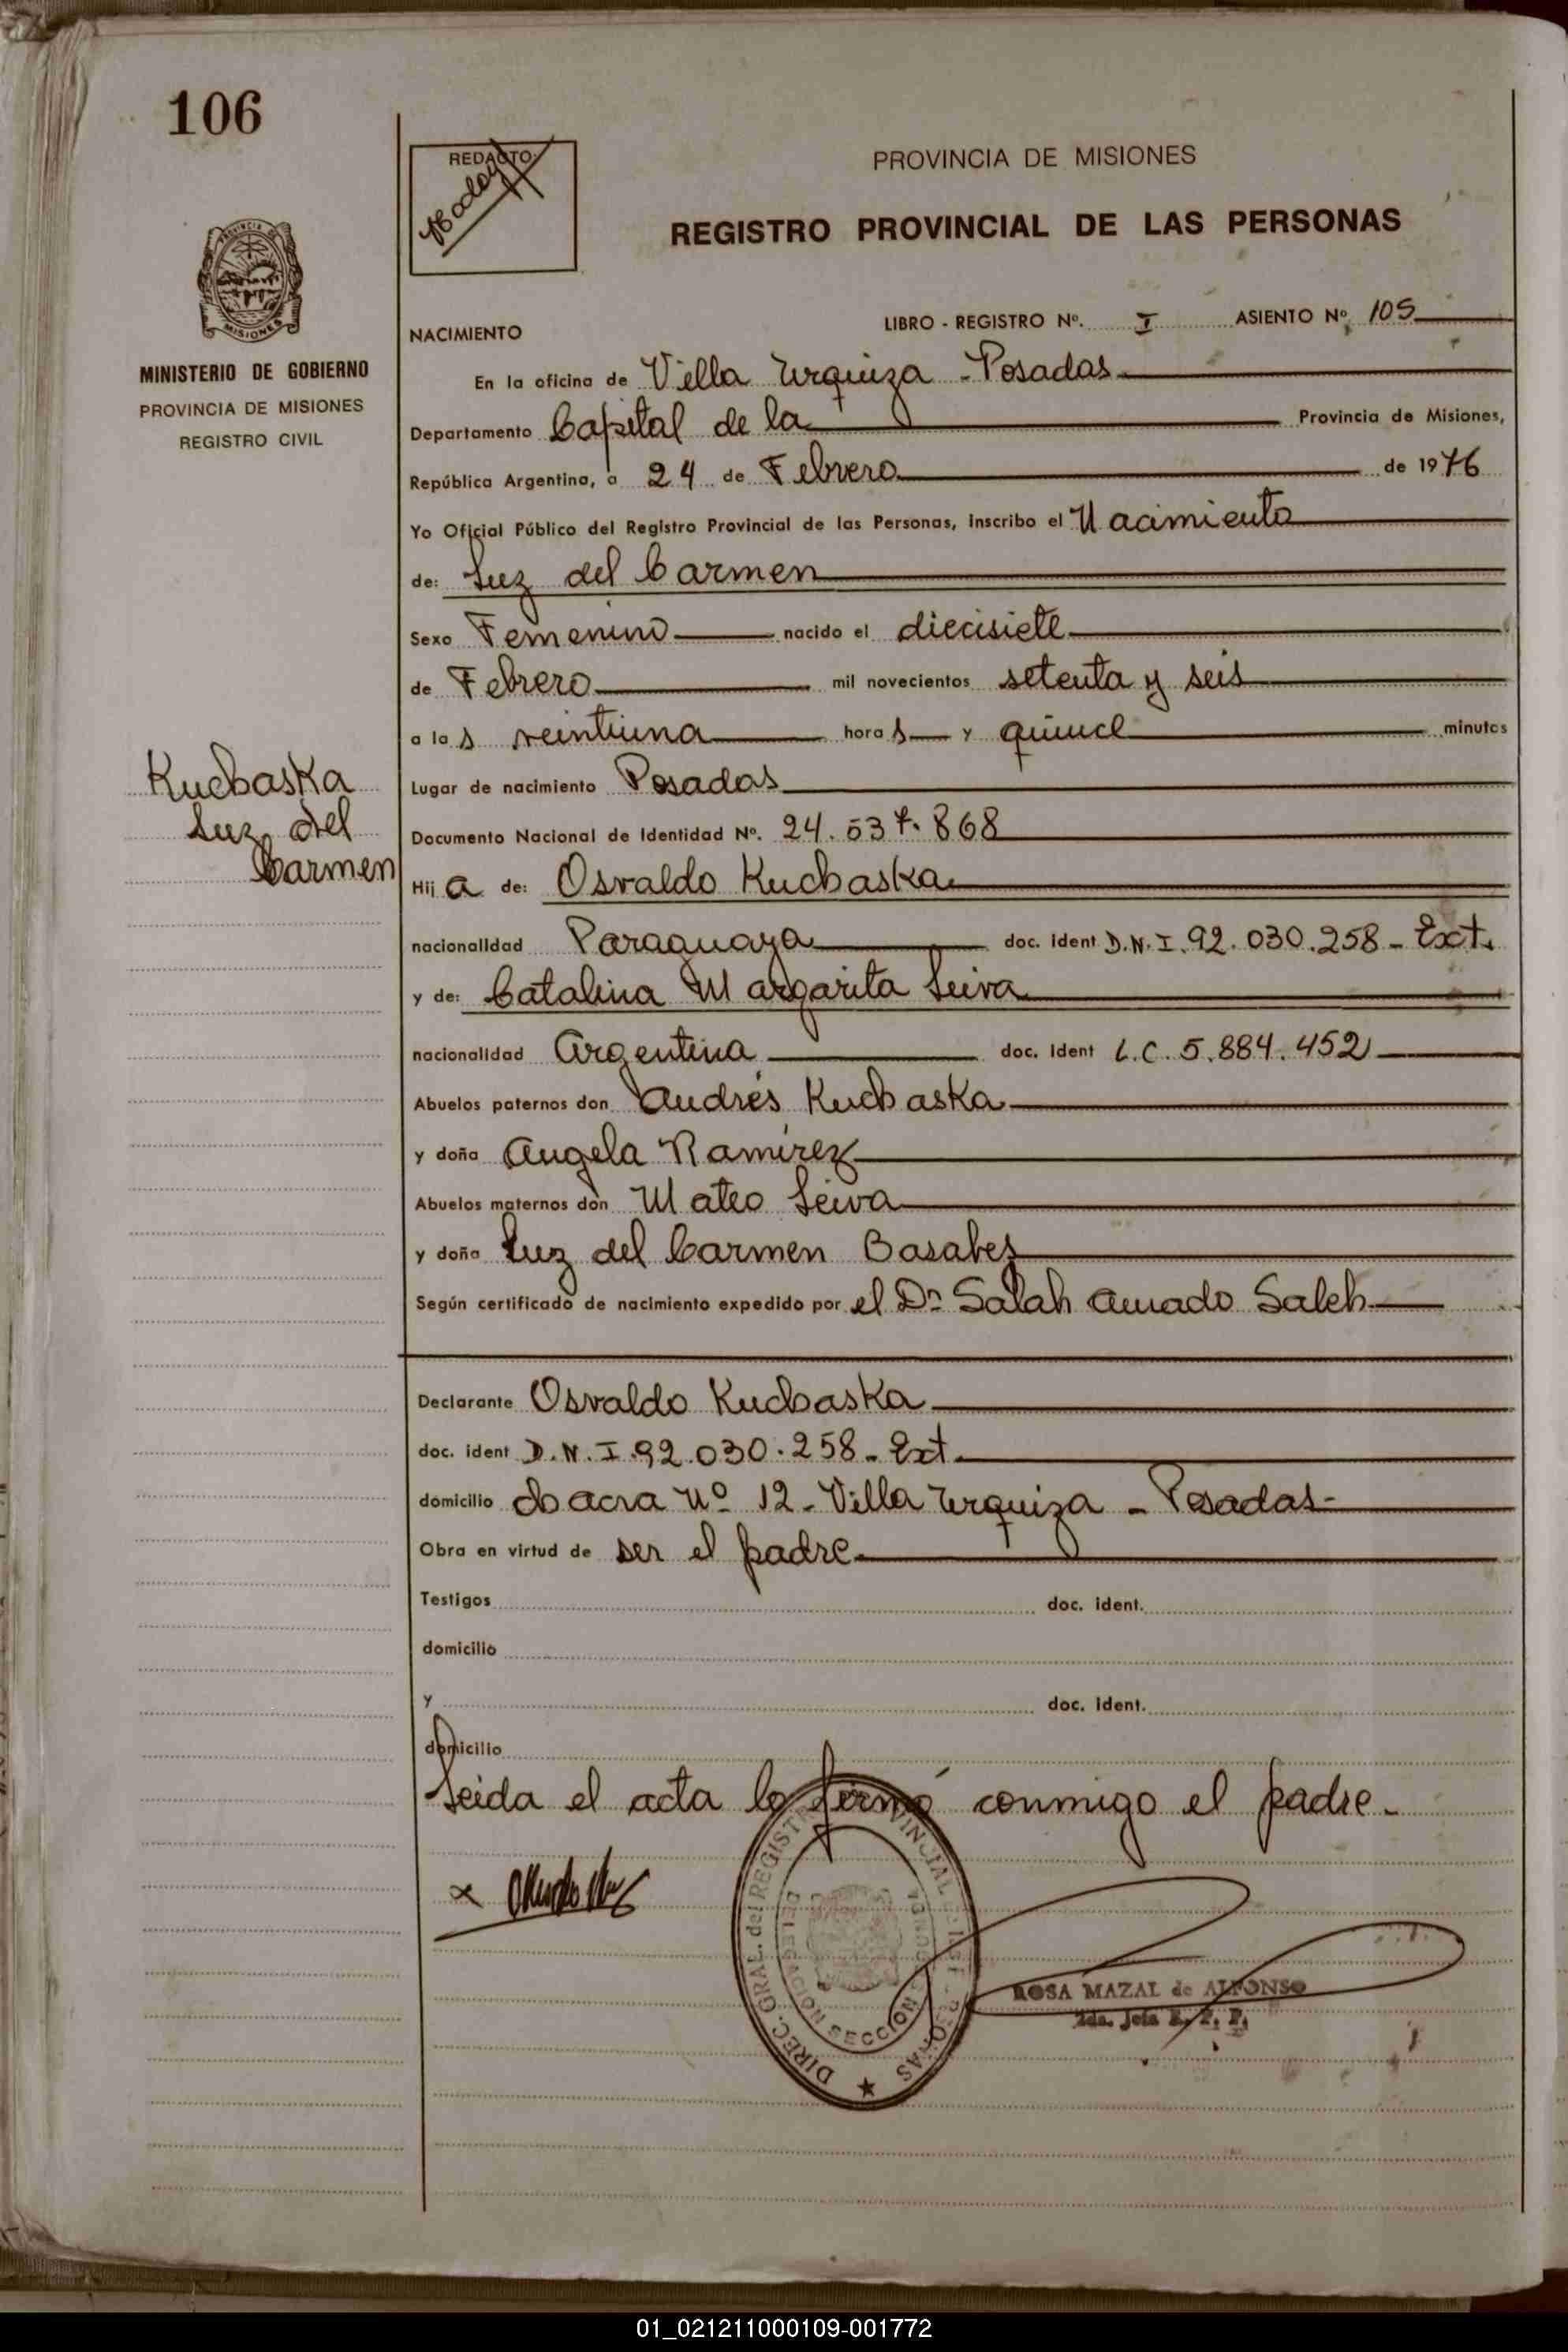 106
REDACTO:
PROVINCIA DE MISIONES
REGISTRO PROVINCIAL DE LAS PERSONAS
MISIONES
MINISTERIO DE GOBIERNO
PROVINCIA DE MISIONES
REGISTRO CIVIL
NACIMIENTO
LIBRO - REGISTRO Nº. I ASIENTO Nº 105
En la oficina de Villa Urquiza - Posadas
Departamento Capital de la Provincia de Misiones,
República Argentina, a 24 de Febrero de 1976
Yo Oficial Público del Registro Provincial de las Personas, inscribo el Nacimiento
de: Luz del Carmen
Sexo Femenino nacido el diecisiete
de Febrero mil novecientos setenta y seis
a las veintiuna horas y quince minutos
Kuchaska
Luz del
Carmen
Lugar de nacimiento Posadas
Documento Nacional de Identidad Nº. 24.537.868
Hija de: Osvaldo Kuchaska
nacionalidad Paraguaya doc. ident D.N.I. 92.030.258 - Ext.
y de: Catalina Margarita Leiva
nacionalidad Argentina doc. ident L.C. 5.884.452
Abuelos paternos don Andrés Kuchaska
y doña Angela Ramírez
Abuelos maternos don Mateo Leiva
y doña Luz del Carmen Basabez
Según certificado de nacimiento expedido por el Dr. Salah Amado Saleh
Declarante Osvaldo Kuchaska
doc. ident D.N.I. 92.030.258 - Ext.
domicilio chacra Nº 12 - Villa Urquiza - Posadas -
Obra en virtud de ser el padre
Testigos doc. ident.
domicilio
y doc. ident.
domicilio
Leida el acta la firmó conmigo el padre.
DIREC. GRAL. del REGISTRO PROVINCIAL de las PERSONAS
DELEGACION SECCION
ROSA MAZAL de ALFONSO
2da. Jefa R. P. P.
01_021211000109-001772